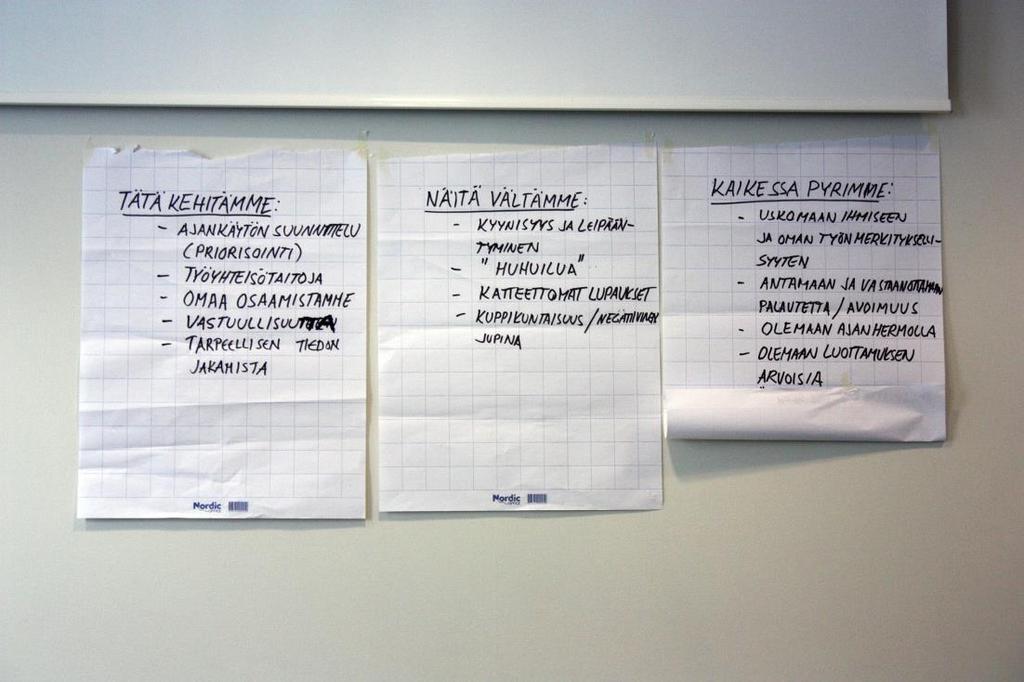 TÄTÄ KEHITÄMME:
- AJANKÄYTÖN SUUNNITTELU
(PRIORISOINTI)
- TYÖYHTEISÖTAITOJA
- OMAA OSAAMISTAMME
- VASTUULLISUUTTA
- TARPEELLISEN TIEDON
JAKAMISTA
Nordic
NÄITÄ VÄLTÄMME:
- KYYNISYYS JA LEIPÄÄN-
TYMINEN
- "HUHUILUA"
- KATTEETTOMAT LUPAUKSET
- KUPPIKUNTAISUUS/NEGATIIVINEN
JUPINA
Nordic
KAIKESSA PYRIMME:
- USKOMAAN IHMISEEN
JA OMAN TYÖN MERKITYKSELLI-
SYYTEEN
- ANTAMAAN JA VASTAANOTTAMAAN
PALAUTETTA/AVOIMUUS
- OLEMAAN AJAN HERMOLLA
- OLEMAAN LUOTTAMUKSEN
ARVOISIA